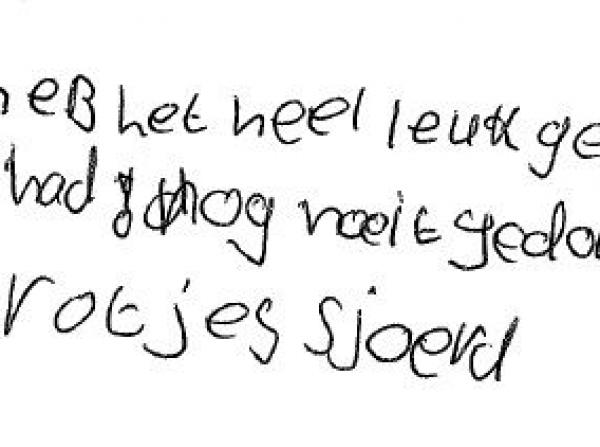 heb het heel leuk ge
had nog nooit gedaa
rotjes sjoerd